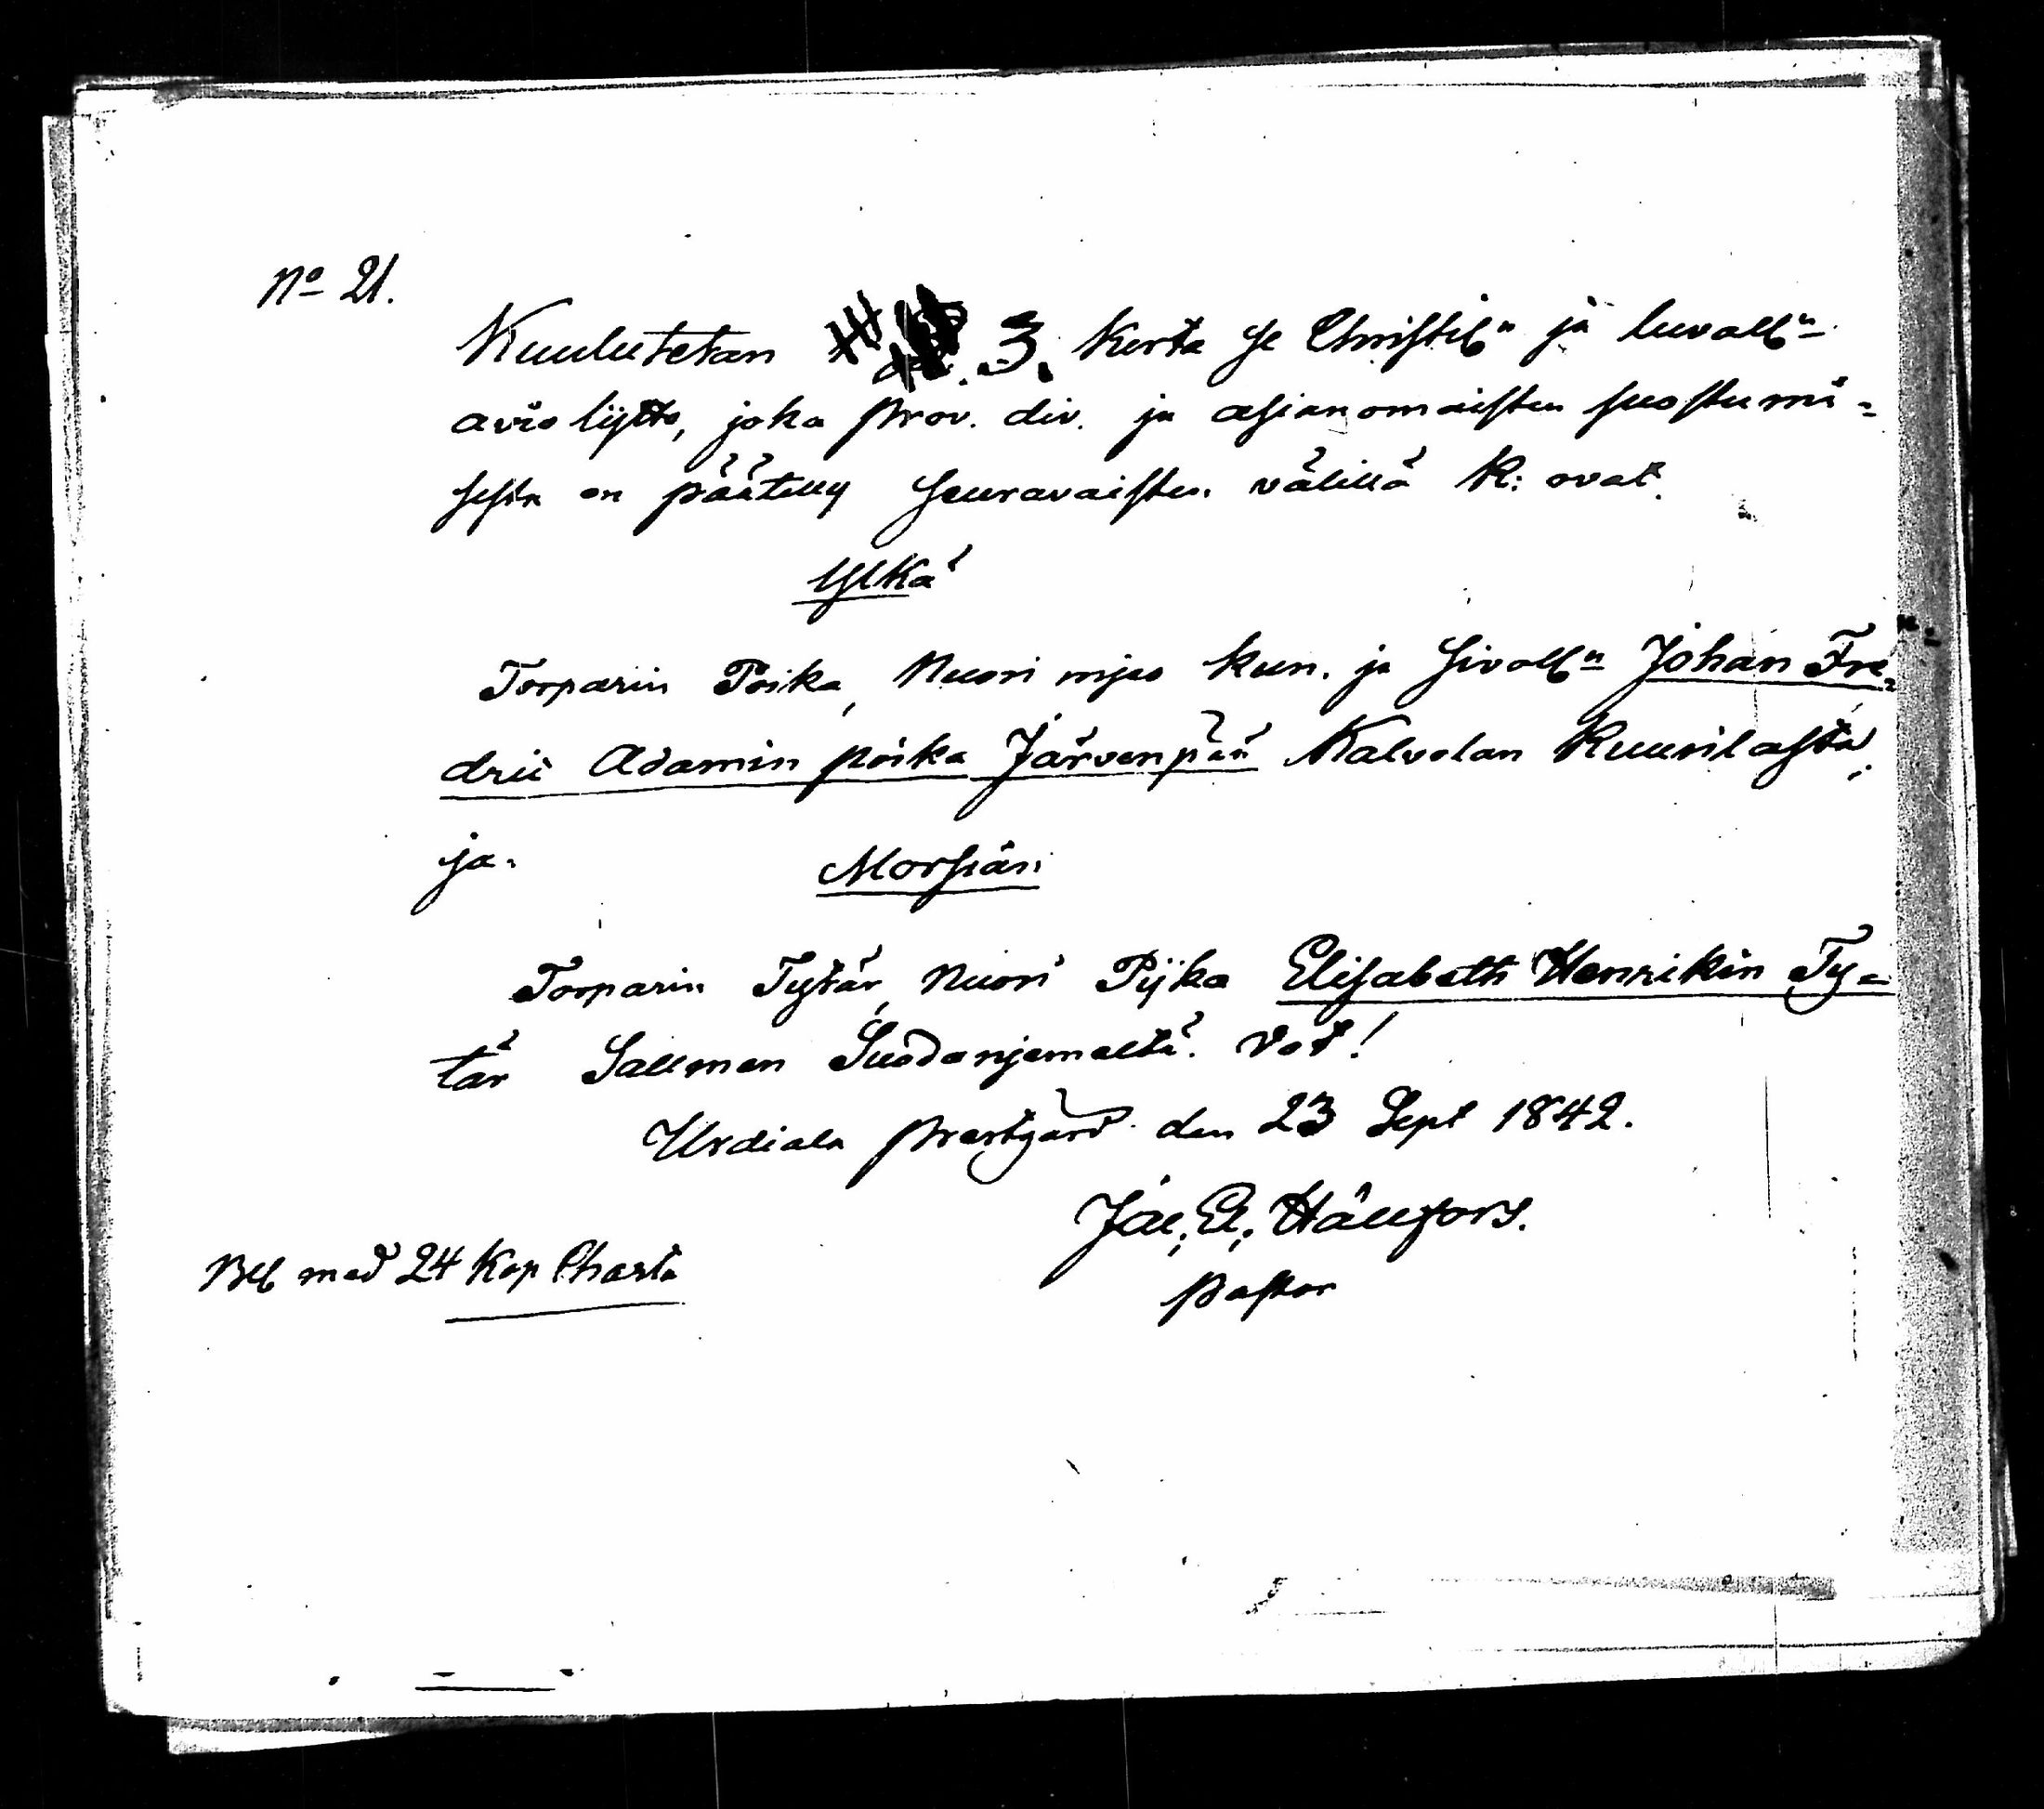 No 21.
Kuulutetan 3. Kerta se Christil:n ja luvall:n
aviolijtto, joka prov. div. ja asianomaisten suostumi-
sesta on päätetty seuravaisten välillä k: ovat.
Ylkä
Torparin Poika, Nuori mjes kun. ja sivall:n Johan Fre-
dric Adamin poika Järvenpää Kalvolan Kuurilasta,
ja.
Morsian
Torparin Tytär, Nuori Pijka Elisabeth Henrikin Ty-
tär Sallmen Suodenjemeltä. Vot!
Urdiala prestgård den 23 Sept 1842.
Jac. El. Hällfors.
pastor
Bel med 24 Kop Charta